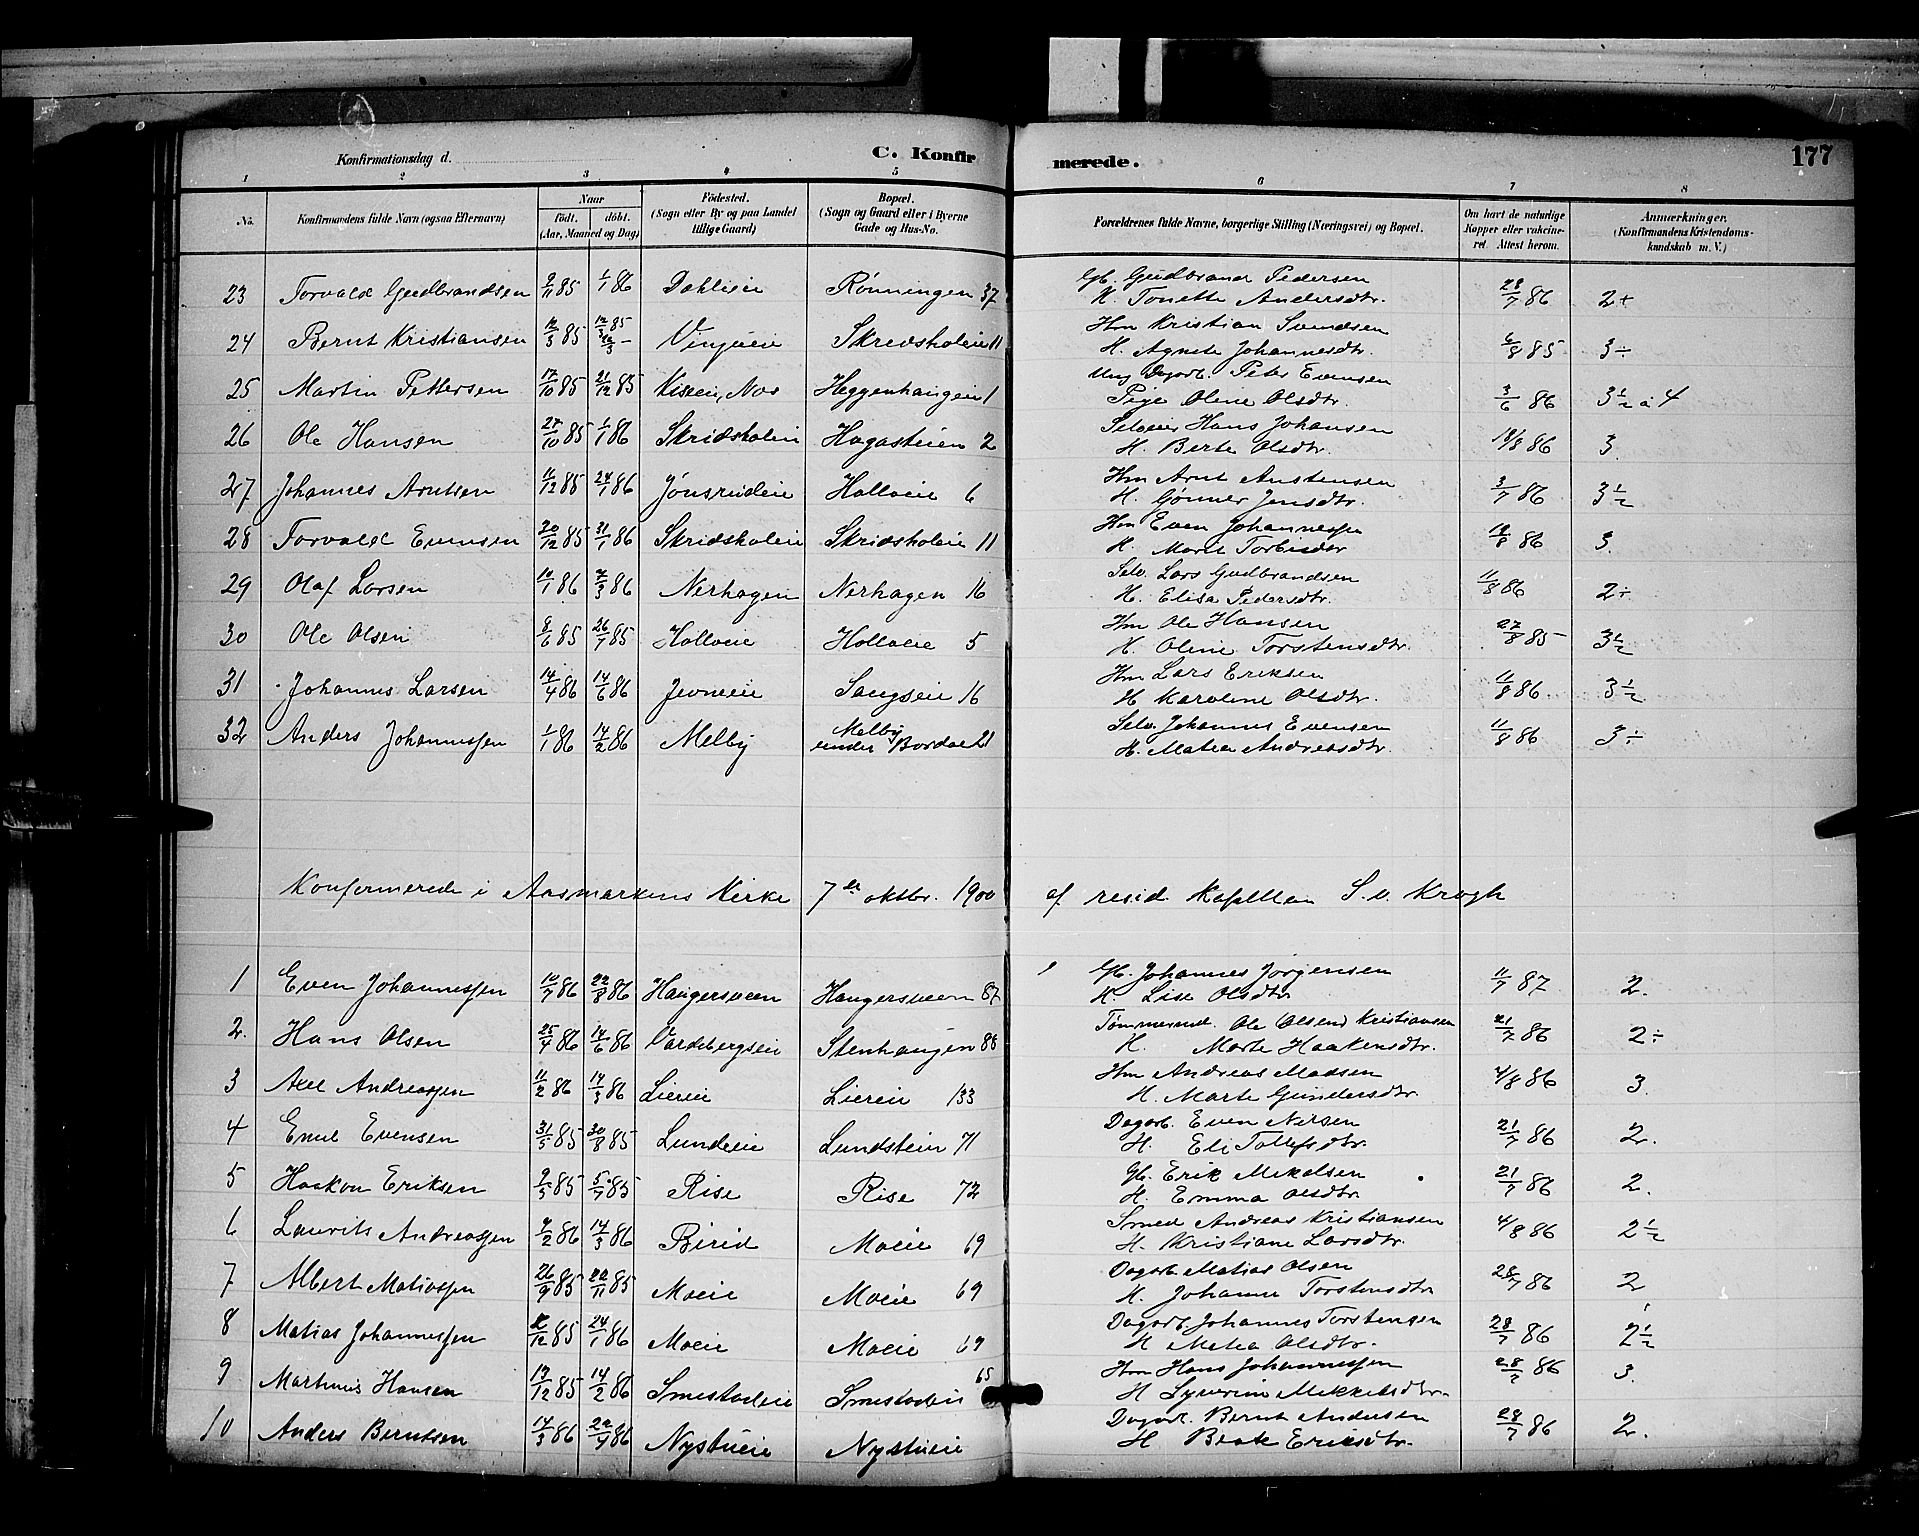 Konfirmationsdag d. C. Konfir merede. 177
1 2 3 4 5 6 7 8
No. Konfirmandens fulde Navn (ogsaa Efternavn) Naar født. døbt. (Aar, Maaned og Dag) Fødested. (Sogn eller By og paa Landet tillige Gaard) Bopæl. (Sogn og Gaard eller i Byerne Gade og Hus-No. Forældrenes fulde Navne, borgerlige Stilling (Næringsvei) og Bopæl. Om havt de naturlige Kopper eller vakcineret. Attest herom. Anmærkninger. (Konfirmandens Kristendomskundskab m. V.)
23 Torvald Gudbrandsen 2/11 85 1/1 86 Dahlieie Rønningen 37 Gb. Gudbrand Pedersen
H. Tonette Andersdtr. 28/7 86 2+
24 Bernt Kristiansen 12/3 85 Vinjueie Skredsholeie 11 Hm Kristian Svendsen
H. Agnete Johannesdtr. 6/8 85 3÷
25 Martin Pettersen 17/10 85 21/12 85 Heggenhaugen 1 Ung Dagarb. Peter Evensen
Pige Oline Olsdtr. 3/6 86 3½ a 4
26 Ole Hansen 27/10 85 1/1 86 Skridsholein Hagasteien 2 Selveier Hans Johansen
H. Berte Olsdtr. 18/8 86 3.
27 Johannes Arntsen 11/12 85 24/1 86 Jønsrudeie Holloeie 6 Hm Arnt Austensen
H. Gønner Jensdtr. 3/7 86 3½
28 Torvald Evensen 20/12 85 31/1 86 Skridsholeie Skridsholeie 11 Hm Even Johannessen
H. Marte 18/8 86 3.
29 Olaf Larsen 10/1 86 2/3 86 Nerhagen Nerhagen 16 Selv. Lars Gudbrandsen
H. Elisa Pedersdtr. 11/8 86 2÷
30 Ole Olsen 8/6 85 26/7 85 Holloeie Holloeie 5 Hm Ole Hansen
H. Oline Torstensdtr. 27/8 85 3½
31 Johannes Larsen 14/4 86 14/6 86 Jevneeie Saugseie 16 Hm Lars Eriksen
H Karoline Olsdtr. 11/8 86. 3½
32 Anders Johannessen 1/1 86 14/2 86 Melby Melby under Bordae 21 Selv. Johannes Evensen
H. Matea Andreasdtr. 11/8 86 3÷
Konfirmerede i Aasmarkens Kirke 7de oktbr. 1900 af resid. Kapellan S. v. Krogh
1 Even Johannessen 10/7 86 22/8 86 Haugersveen Haugersveen 87 Gb. Johannes Jørgensen
H. Lise Olsdtr 11/7 87 2.
2. Hans Olsen 25/4 86 14/6 86 Vardebergseie Stenhaugen 88 Tømmermd. Ole Olsen Kristiansen
H. Marte Haakensdtr. 21/7 86 2÷
3 Axel Andreassen 11/2 86 14/3 86 Liereie Liereie 133 Hm Andreas Madsen
H. Marte Gundersdtr. 4/8 86 3.
4 Emil Evensen 31/5 85 30/8 85 Lundeie Lundstein 71 Dagarb. Even Nilsen
H. Eli Tollefsdtr. 21/7 86 2.
5 Haakon Eriksen 2/5 85 5/7 85 Rise Rise 72 Gb. Erik Mikelsen
H. Emma Olsdtr. 21/7 86 2.
6 Laurits Andreassen 7/2 86 14/3 86 Birid Moeie 69 Smed Andreas Kristiansen
H. Kristiane Larsdtr. 4/8 86 2½
7 Albert Matiassen 26/9 85 22/11 85 Moeie Moeie 69 Dagarb. Matias Olsen
H. Johanne Torstensdtr 28/7 86 2
8 Matias Johannessen 2/12 85 24/1 86 Moeie Moeie 69 Dagarb. Johannes Torstensen
H Matea Olsdtr. 28/7 86 2½
9 Martinus Hansen 13/12 85 14/2 86 Smestadeie Smestadeie 65 Hm Hans Johannessen
H Syverine Mikkelsdtr. 28/7 86 3.
10 Anders Berntsen 14/3 86 22/4 86 Nystueie Nystueie Dagarb. Bernt Andersen
H Beate Eriksdtr. 28/7 86 2.